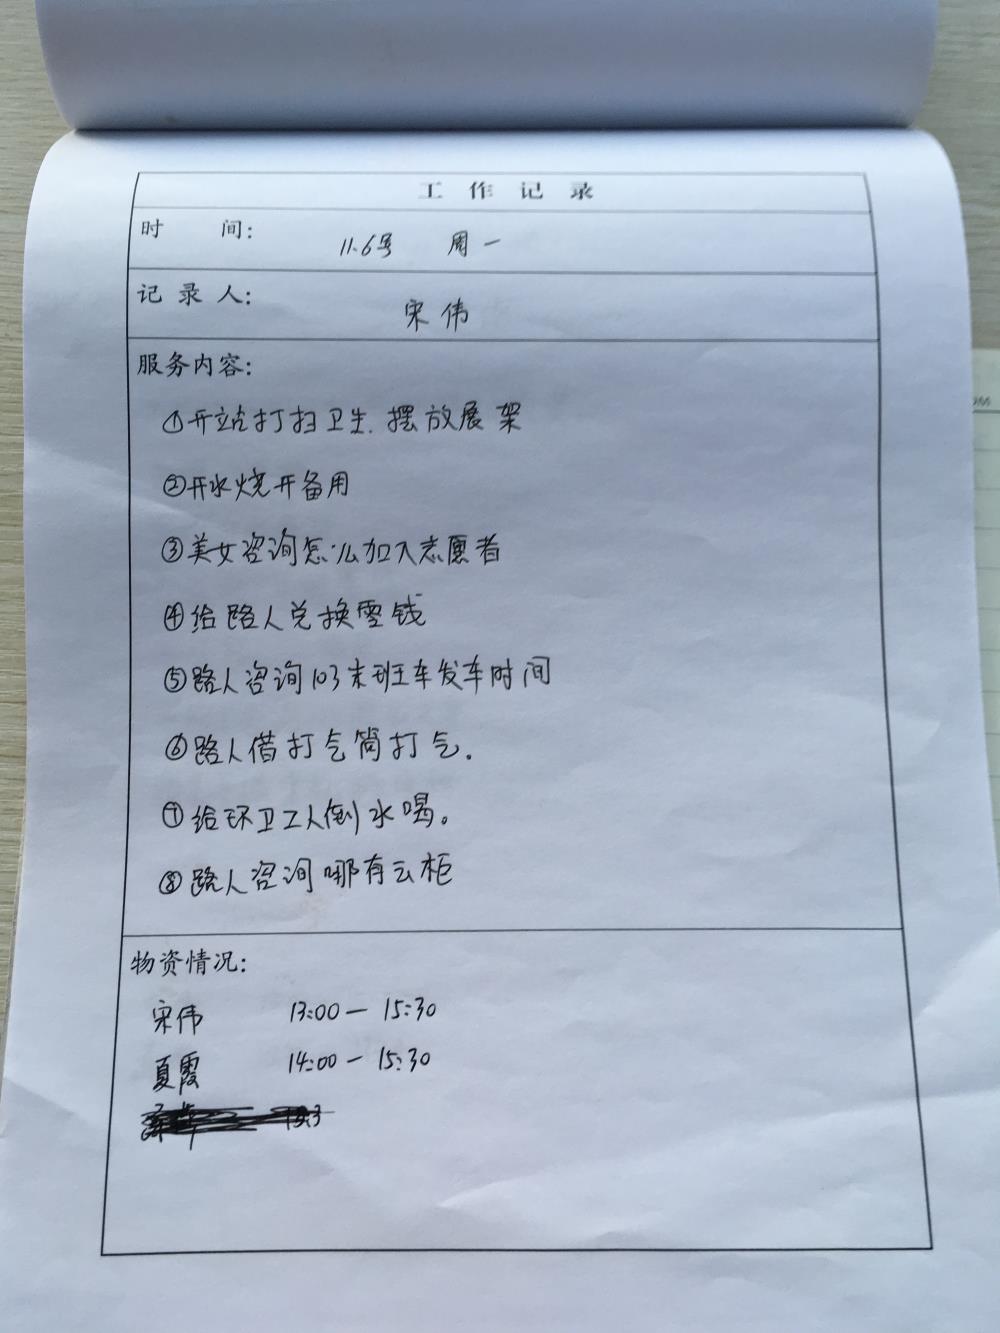 工作记录
时 间: 11.6号 周一
记录人: 宋伟
服务内容:
①开站打扫卫生.摆放展架
②开水烧开备用
③美女咨询怎么加入志愿者
④给路人兑换零钱
⑤路人咨询103末班车发车时间
⑥路人借打气筒打气.
⑦给环卫工人倒水喝。
⑧路人咨询哪有云柜
物资情况:
宋伟 13:00—15:30
夏霞 14:00—15:30